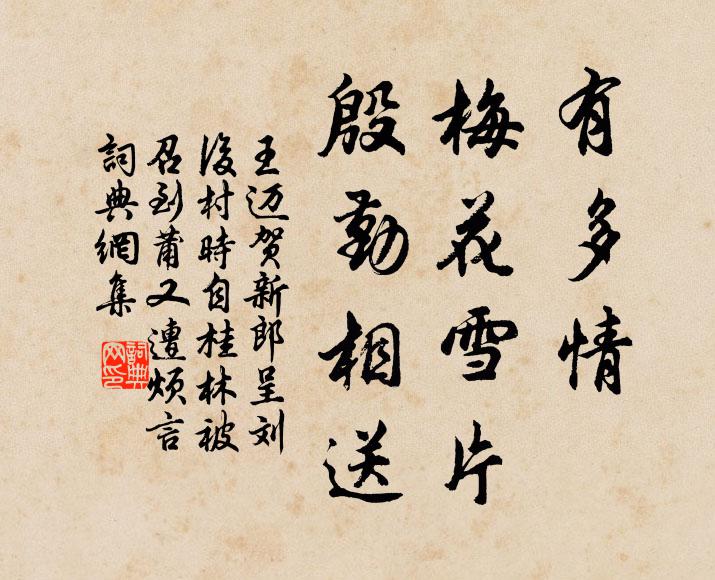 有多情
梅花雪片
殷勤相送
王迈贺新郎呈刘
後村時自桂林被
召到莆又遭烦言
詞典網集
詞典
网印